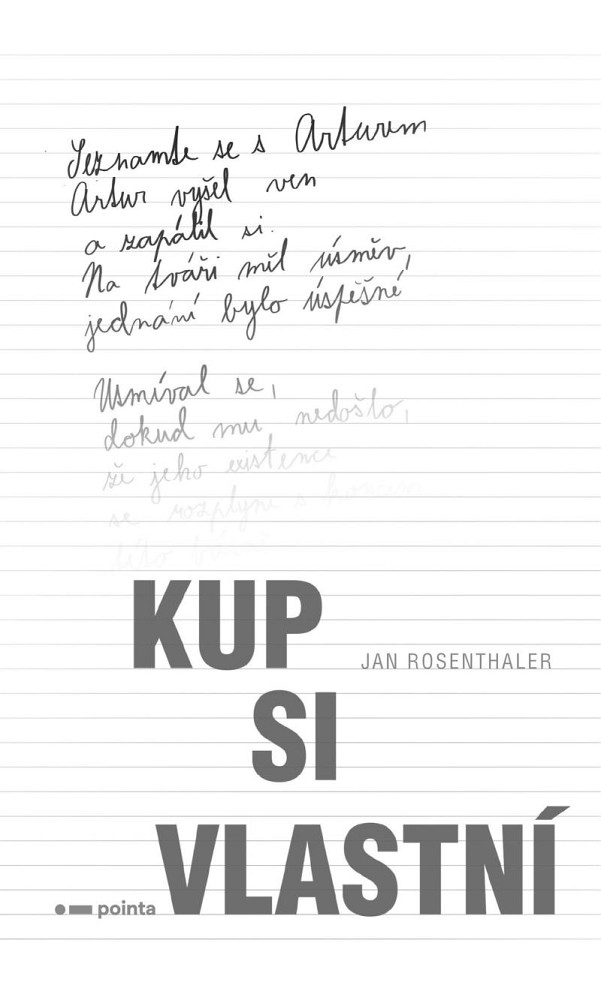 Seznamte se s Arturem
Artur vyšel ven
a zapálil si.
Na tváři měl úsměv,
jednání bylo úspěšné
Usmíval se,
dokud mu nedošlo,
ži jeho existence
se rozplyne s koncem
této
KUP
JAN ROSENTHALER
SI
VLASTNÍ
pointa